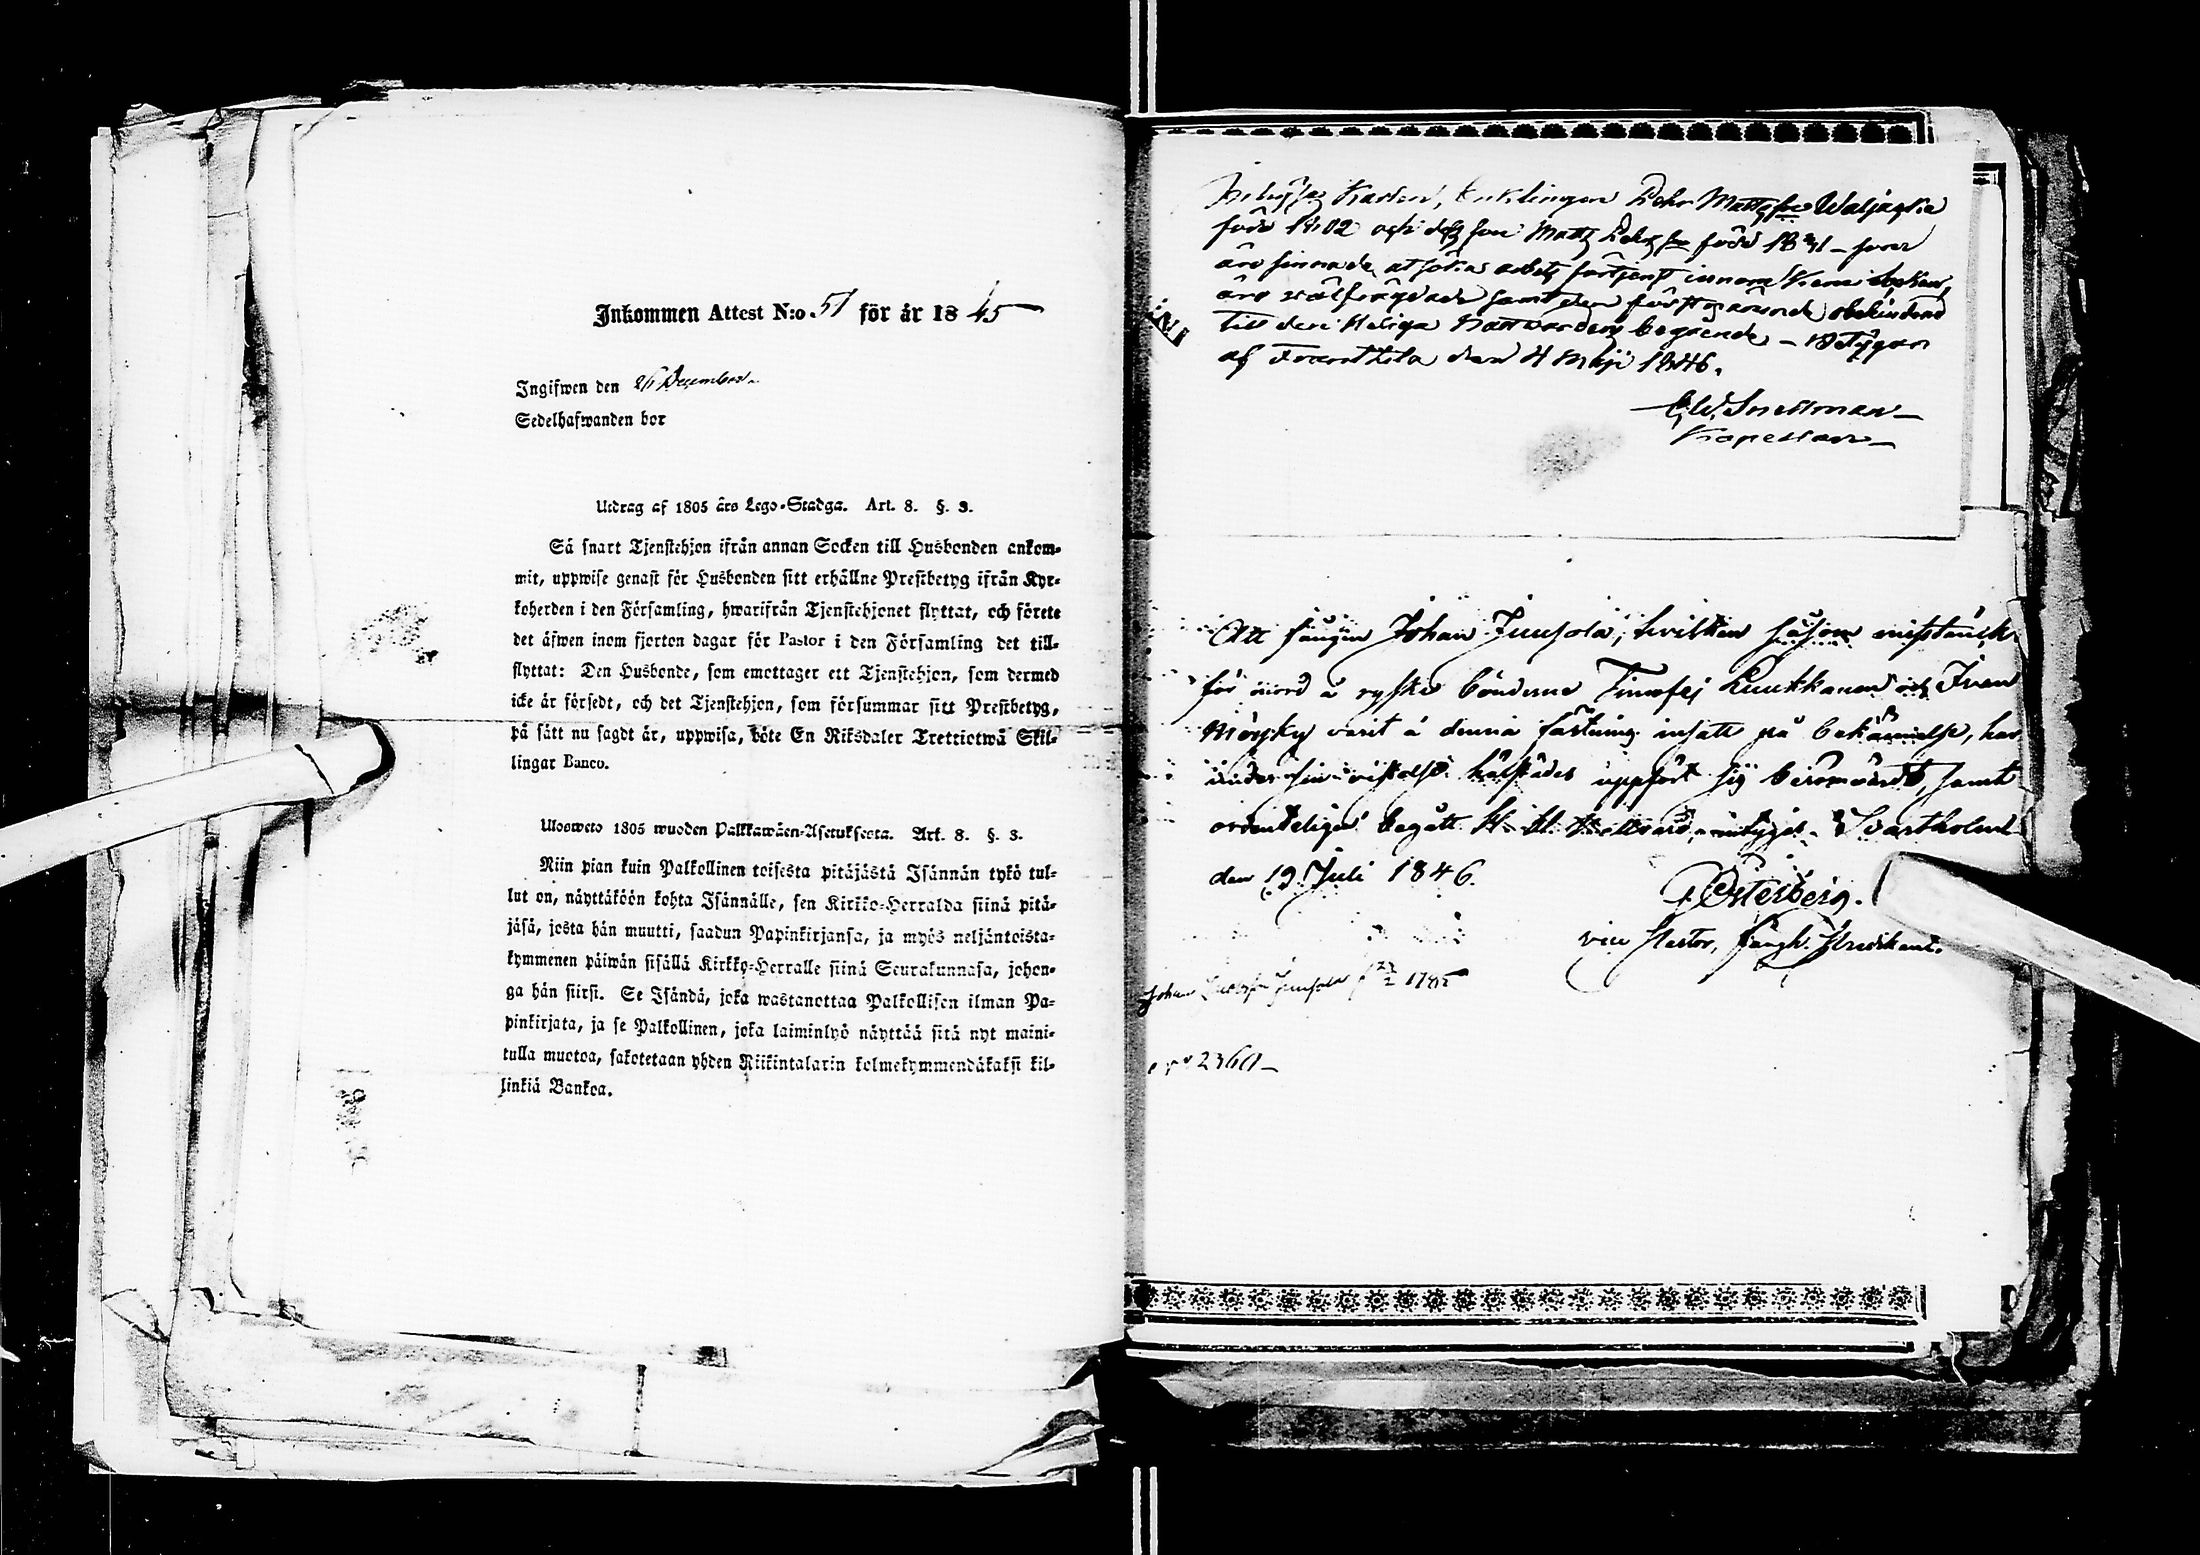 Inkommen Attest N:o 51 för år 1845
Ingifwen den 26 December
Sedelhafwanden bor
Utdrag af 1805 års Lego-Stadga. Art. 8. §. 3.
Så snart Tjenstehjon ifrån annan Socken till Husbonden ankom-
mit, uppwise genast för Husbonden sitt erhållne Prestbetyg ifrån Kyr-
koherden i den Församling, hwarifrån Tjenstehjonet flyttat, och förete
det äfwen inom fjorton dagar för Pastor i den Församling det till-
flyttat: Den Husbonde, som emottager ett Tjenstehjon, som dermed
icke är försedt, och det Tjenstehjon, som försummar sitt Prestbetyg,
på sätt nu sagdt är, uppwisa, böte En Riksdaler Trettiotwå Skil-
lingar Banco.
Ulosweto 1805 wuoden Palkkawäen-Asetuksesta. Art. 8. §. 3.
Niin pian kuin Palkollinen toisesta pitäjästä Isännän tykö tul-
lut on, näyttäköön kohta Isännälle, sen Kirkko-Herralda siinä pitä-
jäsä, josta hän muutti, saadun Papinkirjansa, ja myös neljäntoista-
kymmenen päiwän sisällä Kirkko-Herralle siinä Seurakunnasa, johon-
ga hän siirsi. Se Isändä, joka wastanottaa Palkollisen ilman Pa-
pinkirjata, ja se Palkollinen, joka laiminlyö näyttää sitä nyt maini-
tulla muotoa, sakotetaan yhden Riikintalarin kolmekymmendäkaksi kil-
linkiä Bankoa.
Enklingen Mattsson Waljaska
född 1802 och dess son Matts född 1831
äro sinnade at söka arbets förtjenst innom Kemi Socken,
äro wälfrägdade samt den förstnämnde obehindrad
till den Heliga Nattvardens begående - Betygar
af Frantsila den 4 Maji 1846.
C. W. Snellman
Kapellan
Att fången Johan Juusola, hvilken såsom misstänckt
för mord å ryske bönderne Timofej Luukkanen och Ivan
Mörsky varit å denna fästning insatt på bekännelse, har
under sin vistelse härstädes uppfört sig berömvärdt, samt
ordenteligen begått H. H. Nattvard, intygar. Svartholm
den 19 Juli 1846.
Österberg.
vice Pastor, Fängh. Predikant.
Johan Juusola f 1785
2360